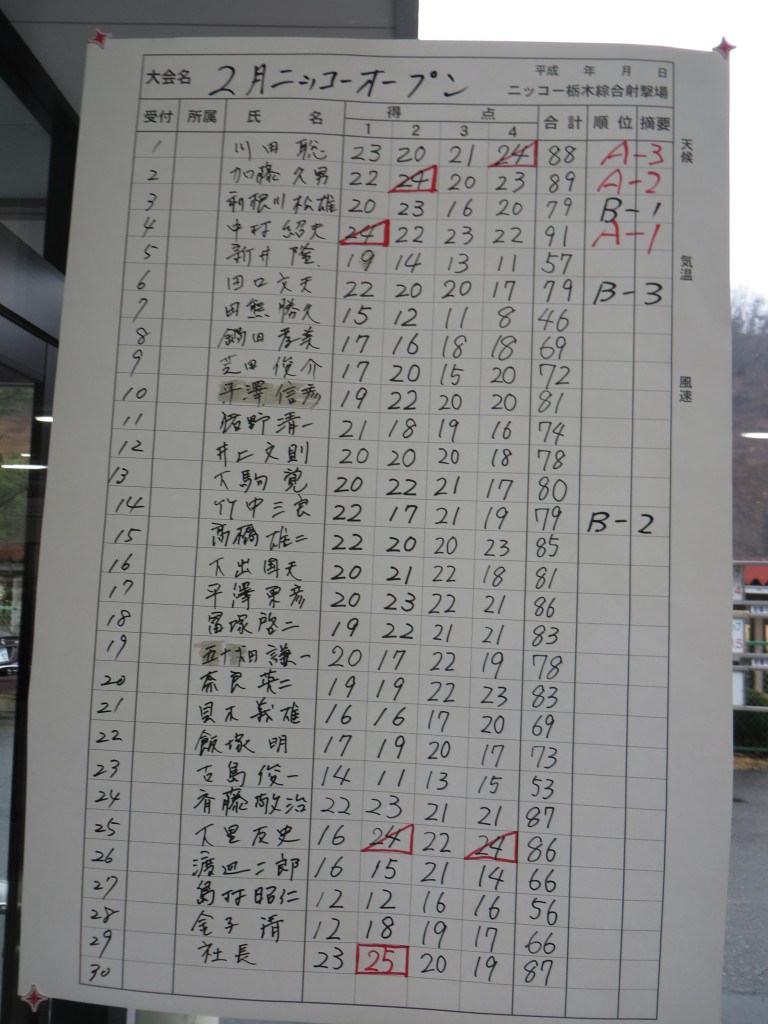 大会名 2月ニッコーオープン 平成 年 月 日
ニッコー栃木綜合射撃場
受付 所属 氏 名 得 点 合計 順位 摘要
1 2 3 4
天候
気温
風速
1 川田 聡 23 20 21 24 88 A-3
2 加藤 久男 22 24 20 23 89 A-2
3 利根川 松雄 20 23 16 20 79 B-1
4 中村 紹史 24 22 23 22 91 A-1
5 新井 隆 19 14 13 11 57
6 田口 文夫 22 20 20 17 79 B-3
7 田熊 勝久 15 12 11 8 46
8 鍋田 孝美 17 16 18 18 69
9 芝田 俊介 17 20 15 20 72
10 平澤 信彦 19 22 20 20 81
11 野 清一 21 18 19 16 74
12 井上 文則 20 20 20 18 78
13 下駒 覚 20 22 21 17 80
14 竹中 三良 22 17 21 19 79 B-2
15 髙橋 雄二 22 20 20 23 85
16 下出 国夫 20 21 22 18 81
17 平澤 彦 20 23 22 21 86
18 冨塚 啓二 19 22 21 21 83
19 五十畑 謙一 20 17 22 19 78
20 奈良 英二 19 19 22 23 83
21 貝木 義雄 16 16 17 20 69
22 飯塚 明 17 19 20 17 73
23 古島 俊一 14 11 13 15 53
24 斉藤 敬治 22 23 21 21 87
25 下里 友史 16 24 22 24 86
26 渡辺 二郎 16 15 21 14 66
27 島村 昭仁 12 12 16 16 56
28 金子 清 12 18 19 17 66
29 社長 23 25 20 19 87
30